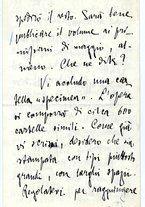 spedirò il resto. Sarà bene
pubblicare il volume ai pri-
missimi di maggio, al-
meno. Che ne dite?
Vi accludo una car
tella "specimen". L'opera
si comporrà di circa 600
cartelle simili. Come già
vi scrissi, desidero che sia
stampata con tipi piuttosto
grandi, con larghi spazi.
Regolatevi per raggiungere